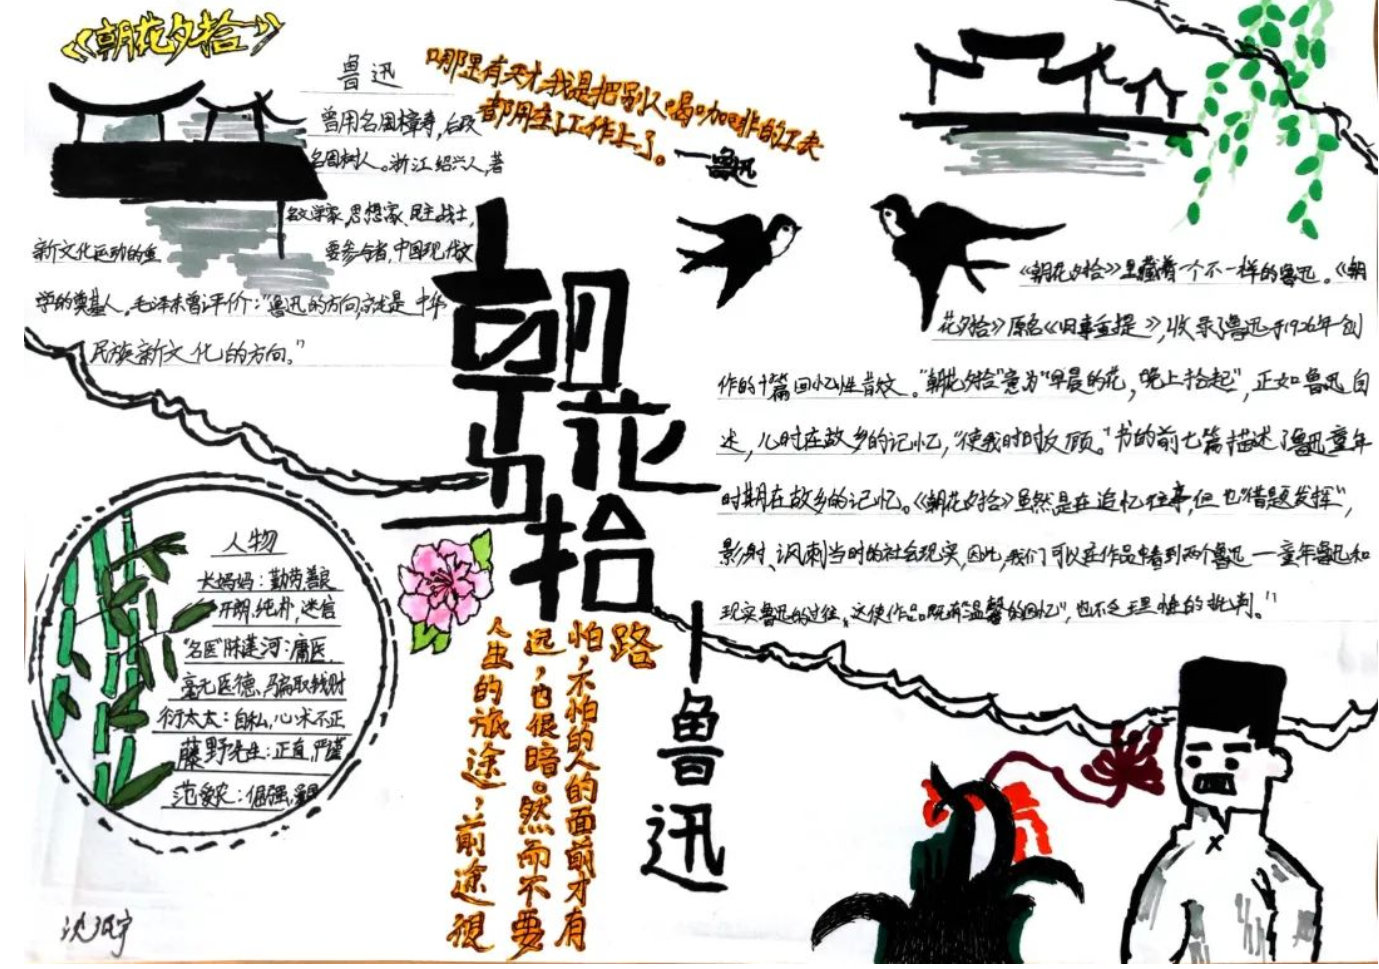 《朝花夕拾》
鲁迅
曾用名周樟寿，后改
名周树人。浙江绍兴人，著
名文学家，思想家、民主战士，
新文化运动的重
要参与者，中国现代文
学的奠基人。毛泽东曾评价：“鲁迅的方向，就是中华
民族新文化的方向。”
哪里有天才我是把别人喝咖啡的工夫
都用在工作上了。
—鲁迅
朝花夕拾
—鲁迅
《朝花夕拾》里藏着一个不一样的鲁迅。《朝
花夕拾》原名《旧事重提》，收录了鲁迅于1926年创
作的十篇回忆性散文。“朝花夕拾”意为“早晨的花，晚上拾起”，正如鲁迅自
述，儿时在故乡的记忆，“使我时时反顾。”书的前七篇描述了鲁迅童年
时期在故乡的记忆。《朝花夕拾》虽然是在追忆往事，但也“借题发挥”，
影射、讽刺当时的社会现实，因此，我们可以在作品中看到两个鲁迅—童年鲁迅和
现实鲁迅的过往。这使作品既有“温馨的回忆”，也不乏理性的批判。”
人物
长妈妈：勤劳善良
开朗，纯朴，迷信
“名医”陈莲河：庸医，
毫无医德，骗取钱财
衍太太：自私，心术不正
藤野先生：正直，严谨
范爱农：倔强，
路
怕，不怕的人的面前才有
远，也很暗。然而不要
人生的旅途，前途很